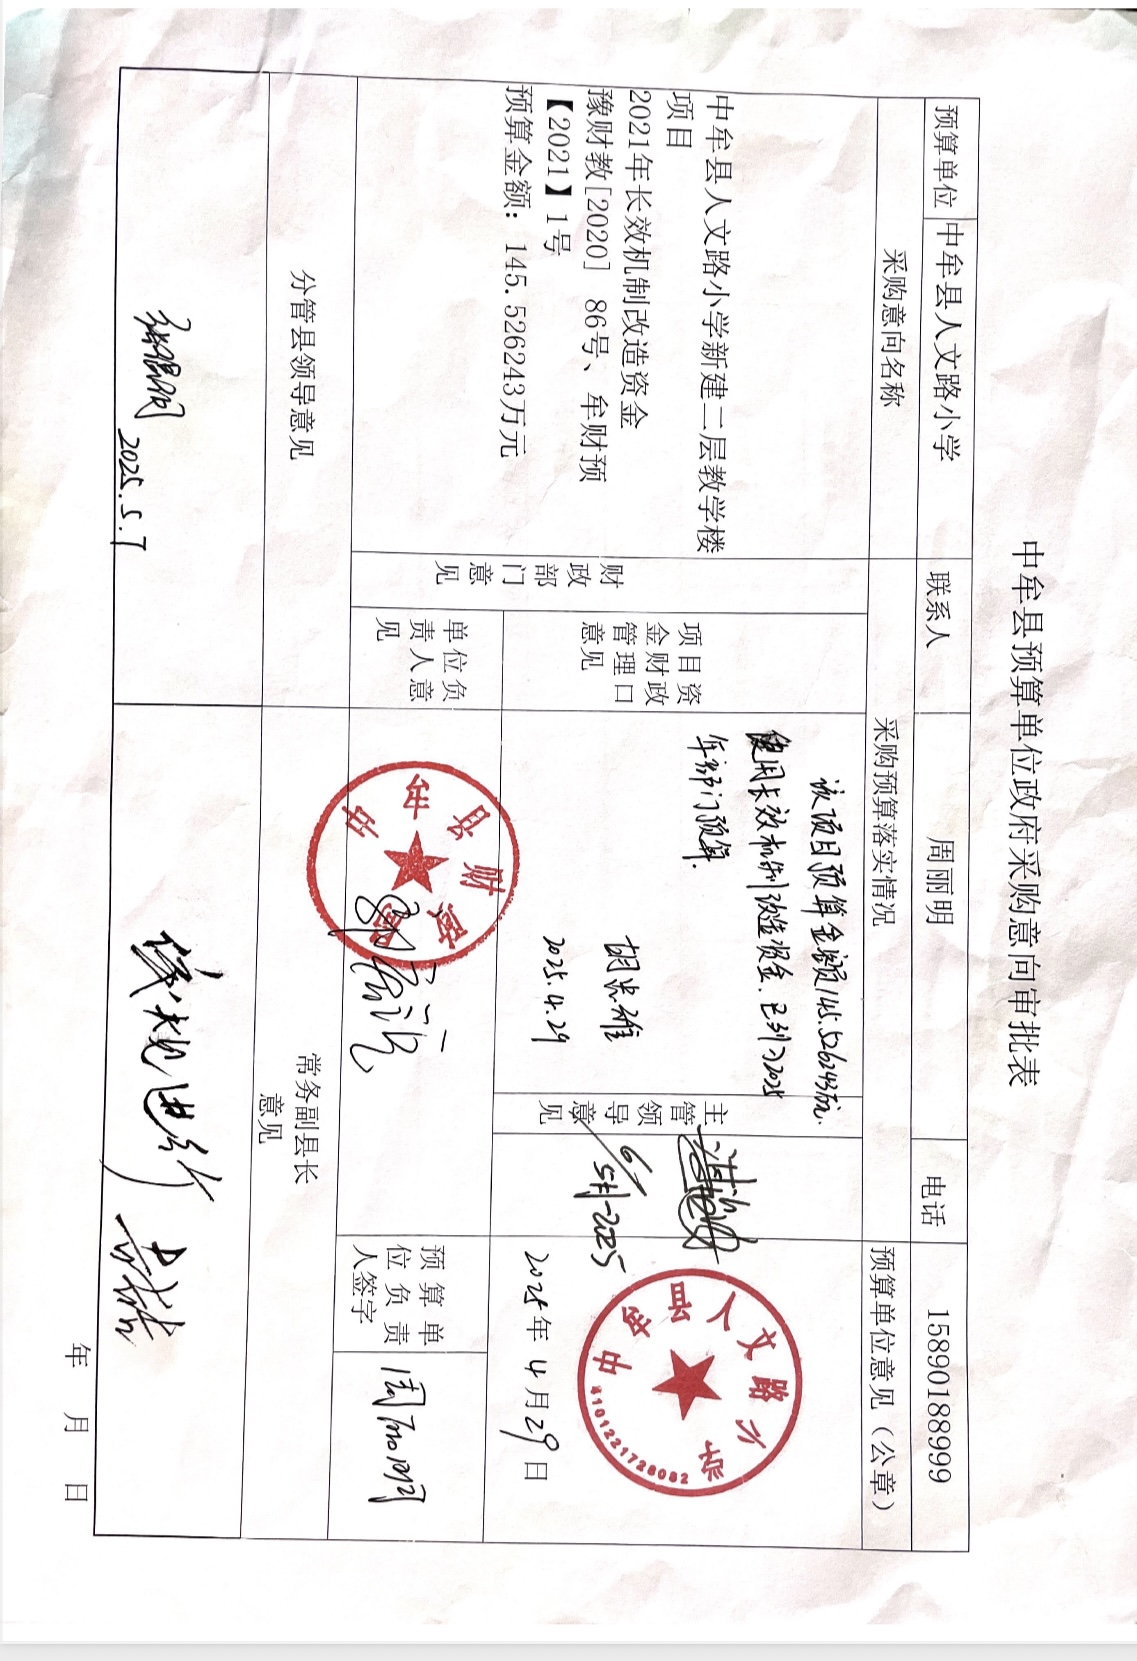 中牟县预算单位政府采购意向审批表
预算单位 中牟县人文路小学 联系人 周丽明 电话 15890188999
采购意向名称 采购预算落实情况 预算单位意见（公章）
中牟县人文路小学新建二层教学楼
项目
2021年长效机制改造资金
豫财教[2020] 86号、牟财预
【2021】1号
预算金额：145.526243万元
财政部门意见
项目资
金财政
管理口
意见
该项目预算金额145.526243万元.
使用长效机制改造资金.已列入2025
年部门预算.
2025.4.29
主管
领导
意见
6/5月-2025
中牟县人文路小学
4101221728082
2025年4月29日
单位负
责人意
见
中牟县财政局
预算单
位负责
人签字
周丽明
分管县领导意见
常务副县长
意见
2025.5.7
年 月 日